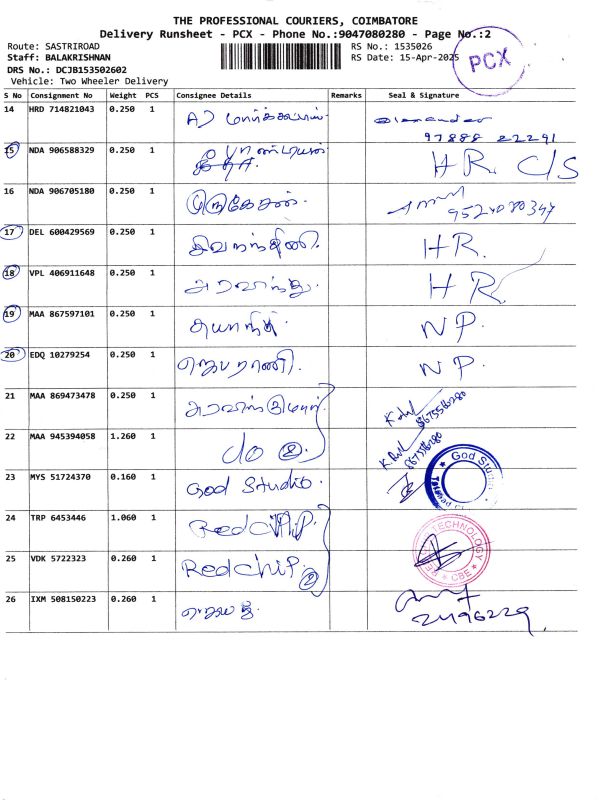 THE PROFESSIONAL COURIERS, COIMBATORE
Delivery Runsheet - PCX - Phone No.:9047080280 - Page No.:2
Route: SASTRIROAD
RS No.: 1535026
Staff: BALAKRISHNAN
RS Date: 15-Apr-2025
DRS No.: DCJB153502602
Vehicle: Two Wheeler Delivery
PCX
S No Consignment No Weight PCS Consignee Details Remarks Seal & Signature
14 HRD 714821043 0.250 1
97888 22291
15 NDA 906588329 0.250 1 H R. C/S
16 NDA 906705180 0.250 1 முருகேசன்.
9524080347
17 DEL 600429569 0.250 1 சிவநந்தினி. H R.
18 VPL 406911648 0.250 1 அரவிந்த். H R.
19 MAA 867597101 0.250 1 N P.
20 EDQ 10279254 0.250 1 ஜெபராணி. N P.
21 MAA 869473478 0.250 1 அரவிந்த்குமார் 8675580280
22 MAA 945394058 1.260 1 do ② 8675580280
23 MYS 51724370 0.160 1 God Studio. God Studio
24 TRP 6453446 1.060 1 Redchip. TECHNOLOGY
25 VDK 5722323 0.260 1 Redchip. ② CBE
26 IXM 508150223 0.260 1